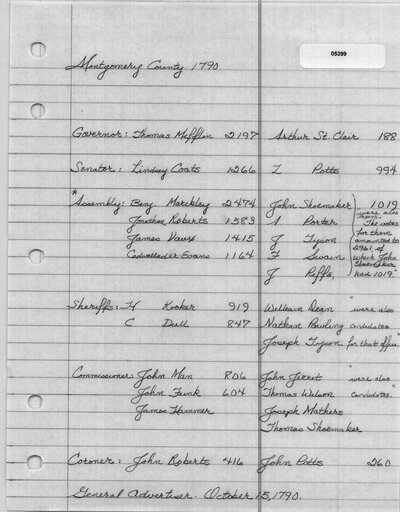 05399
Montgomery County 1790
Governor: Thomas Mifflin 2197 Arthur St. Clair 188
Senator: Lindsay Coats 1266 I Potts 994
* Assembly: Benj. Markley 2474 John Shoemaker 1019
Jonathan Roberts 1583 A Porter "were also men. The votes
James Vaux 1415 J Tyson for them amounted to
Cadwallader Evans 1164 F Swain 2961, of which John
J Riffs, Shoemaker had 1019"
Sheriffs: H Rooker 919 William Dean "were also
C Dull 847 Nathan Bowling candidates
Joseph Tyson for that office"
Commissioner: John Man 806 John Jerret "were also
John Funk 604 Thomas Wilson candidates."
James Hamner Joseph Mathers
Thomas Shoemaker
Coroner: John Roberts 416 John Potts 260
General Advertiser. October 15, 1790.